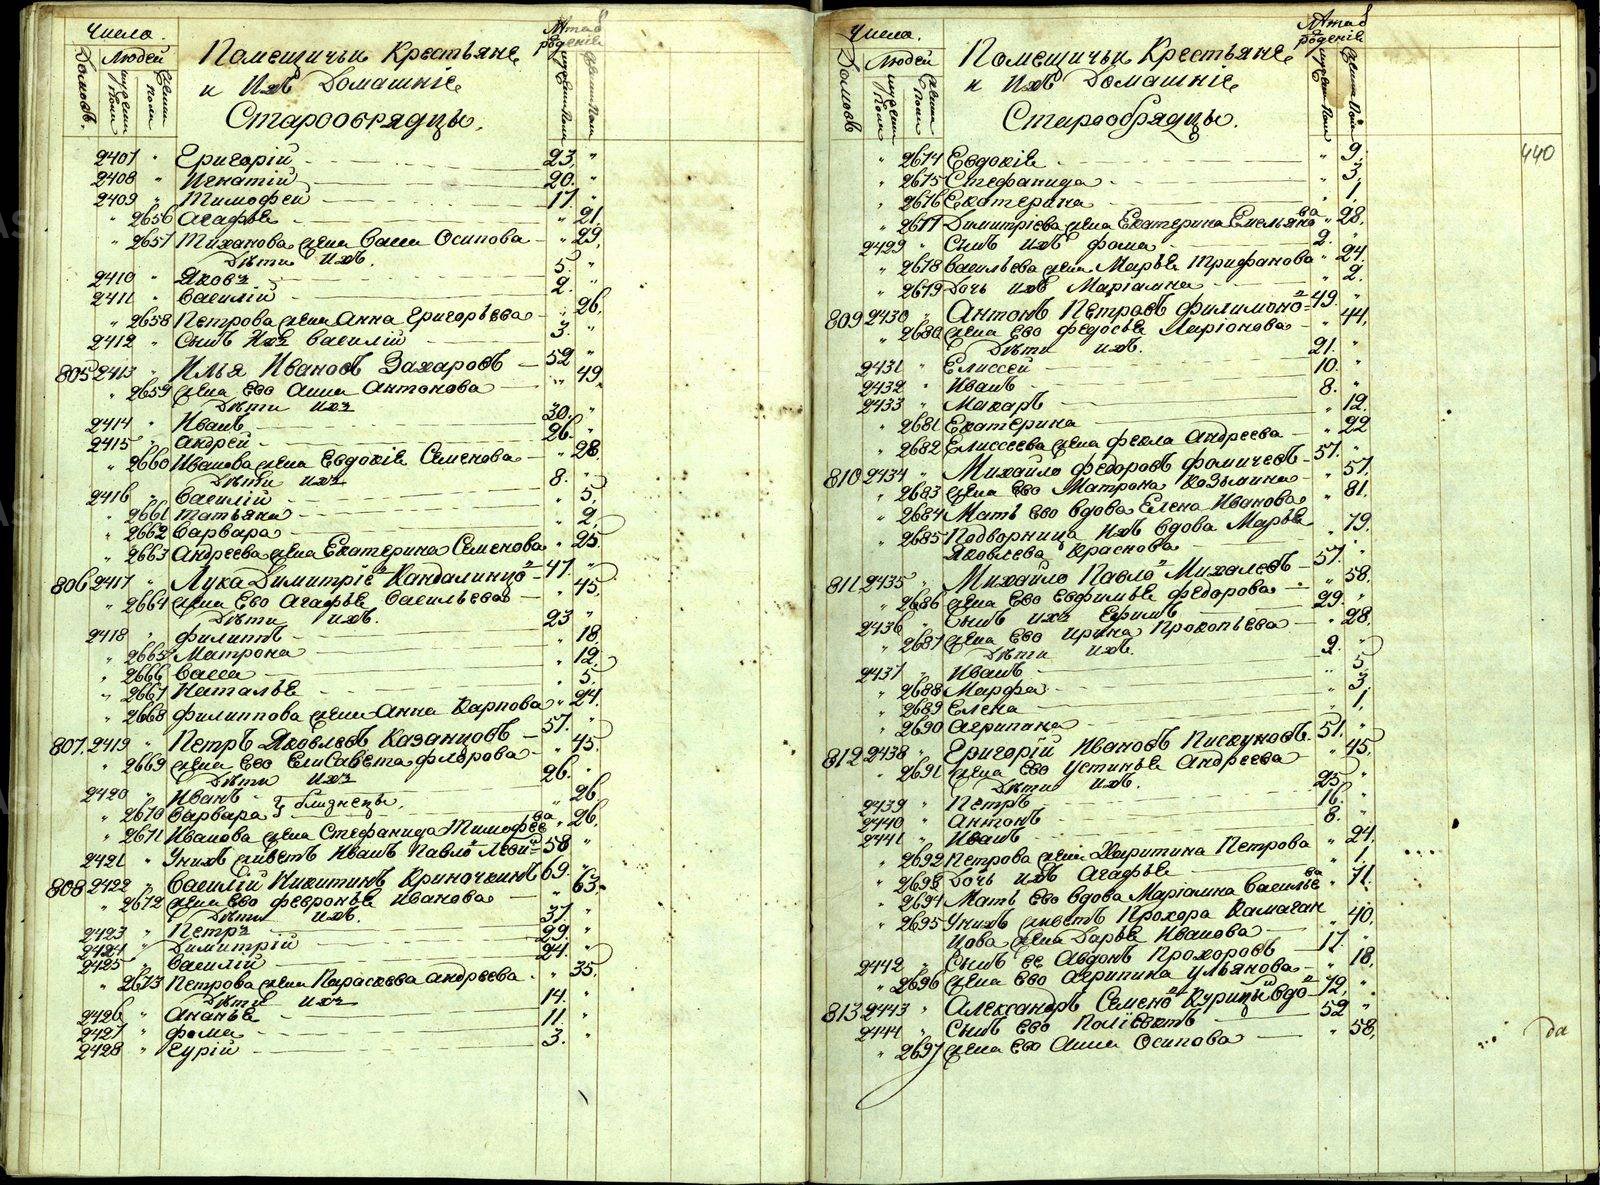 Числа.
Лѣта отъ рожденія
Домовъ.
Людей
мужеска пола
женска пола
Помещичьи Крестьяне
и Ихъ Домашніе
Старообрядцы.
2407 " Григорій 23. "
2408 " Игнатій 20. "
2409 " Тимофей 17. "
" 2656 Агафья " 21.
" 2657 жена Васса Осипова " 29.
Дѣти ихъ.
2410 " Яковъ 5. "
2411 " Василій 2. "
" 2658 Петрова жена Анна Григорьева " 26.
2412 " Сынъ Ихъ Василій 3. "
805 2413 " Илья Ивановъ Захаровъ 52 "
" 2659 жена Ево Анна Антонова " 49
Дѣти ихъ
2414 " Иванъ 30. "
2415 " Андрей 26. "
" 2660 Иванова жена Евдокія Семенова " 28.
Дѣти ихъ
2416 " Василій 8. "
" 2661 Татьяна " 5.
" 2662 Варвара " 2.
" 2663 Андреева жена Екатерина Семенова " 25.
806 2417 " Лука Димитріе 47. "
" 2664 жена Ево Агафья Васильева " 45.
Дѣти ихъ.
2418 " Филиппъ 23 "
" 2665 Матрона " 18
" 2666 Васса " 12.
" 2667 Наталья " 5.
" 2668 Филиппова жена Анна Карпова " 24.
807. 2419 " Петръ Яковлевъ Казанцовъ 57. "
" 2669 жена Ево Елисавета Флорова " 45.
Дѣти ихъ
2420 " Иванъ } близнецы. 26. "
" 2670 Варвара } " 26
" 2671 Иванова жена Стефанида Тимофеева " 26.
2421 " Унихъ живетъ Иванъ Павло 58 "
808 2422 " Василій Никитинъ Криночкинъ 69. "
" 2672 жена Ево Февронья Иванова " 63.
Дѣти ихъ.
2423 " Петръ 37. "
2424 " Димитрій 29. "
2425 " Василій 24. "
" 2673 Петрова жена Параскева Андреева " 35.
Дѣти ихъ
2426 " Ананье 14. "
2427 " Фома 11. "
2428 " Гурій 3. "
Числа.
Лѣта отъ рожденія
Домовъ
Людей
мужеска пола
женска пола
Помещичьи Крестьяне
и Ихъ Домашніе
Старообрядцы.
440
" 2674 Евдокія " 9.
" 2675 Стефанида " 3.
" 2676 Екатерина " 1.
" 2677 Димитріева жена Екатерина Емельянова " 28.
2429 " Сынъ ихъ Фома 2. "
" 2678 Васильева жена Марья Трифанова " 24.
" 2679 Дочь ихъ Маріамна " 2.
809 2430 " Антонъ Петровъ Филимоно 49. "
" 2680 жена Ево Федосья Ларіонова " 44.
Дѣти ихъ.
2431 " Елиссей 21. "
2432 " Иванъ 10. "
2433 " Макаръ 8. "
" 2681 Екатерина " 12.
" 2682 Елиссеева жена Фекла Андреева " 22
810 2434 " Михайло Федоровъ Фомичевъ 57. "
" 2683 жена Ево Матрона Козьмина " 57.
" 2684 Мать Ево вдова Елена Иванова " 81.
" 2685 Подворница Ихъ вдова Марья " 79.
Яковлева Краснова
811 2435 " Михайло Павло Михалевъ 57. "
" 2686 жена Ево Евфимья Федорова " 58.
2436 " Сынъ ихъ Ефимъ 29. "
" 2687 жена Ево Ирина Прокопьева " 28.
Дѣти ихъ.
2437 " Иванъ 2. "
" 2688 Марфа " 5
" 2689 Елена " 3.
" 2690 Агрипина " 1.
812 2438 " Григорій Ивановъ Пискуновъ 51. "
" 2691 жена Ево Устинья Андреева " 45.
Дѣти ихъ.
2439 " Петръ 25. "
2440 " Антонъ 16. "
2441 " Иванъ 8. "
" 2692 Петрова жена Харитина Петрова " 24.
" 2693 Дочь ихъ Агафья " 1.
" 2694 Мать Ево вдова Маріамна Васильева " 71.
" 2695 Унихъ живетъ Прохора Камаган " 40.
цова жена Дарья Иванова
2442 " Сынъ ее Авдонъ Прохоровъ 17. "
" 2696 жена Ево Агрипина Ульянова " 18.
813. 2443 " Александръ Семено 72. "
2444 " Сынъ Ево Поліевктъ 52 "
" 2697 жена Ево Анна Осипова " 58.
да